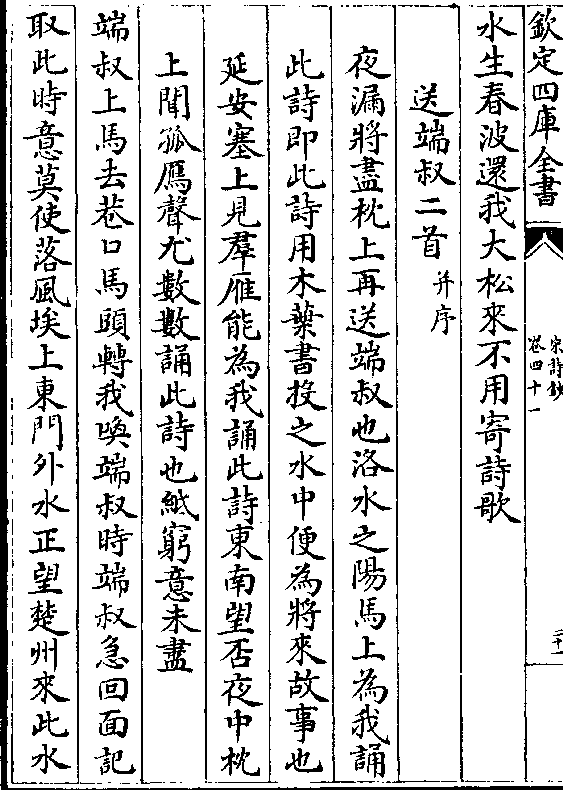 欽定四庫全書
宋詩鈔
卷四十一
水生春波還我大松來不用寄詩歌
送端叔二首 并序
夜漏將盡枕上再送端叔也洛水之陽馬上為我誦
此詩即此詩用木葉書投之水中便為將來故事也
延安塞上見羣雁能為我誦此詩東南望否夜中枕
上聞孤鴈聲尤數數誦此詩也紙窮意未盡
端叔上馬去巷口馬頭轉我喚端叔時端叔急回面記
取此時意莫使落風埃上東門外水正望楚州來此水